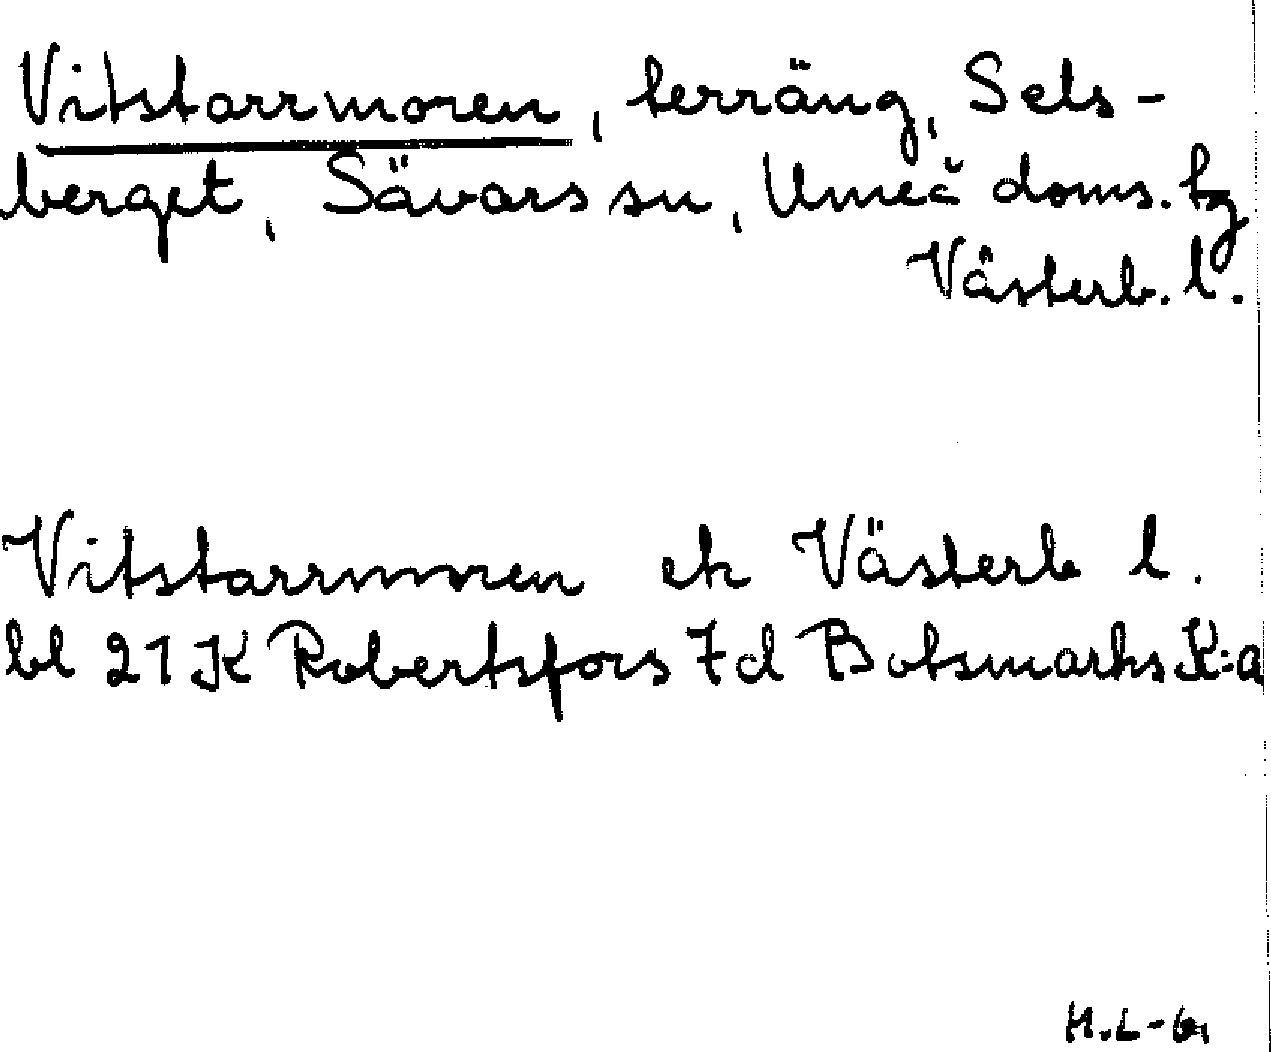 Vitstarrmoren, terräng, Sels-
berget, Sävars sn, Umeå doms. tg
Västerb. l.
Vitstarrmoren ek Västerb l.
bl 21 K Robertsfors 7d Botsmarks K:a
H.L-G